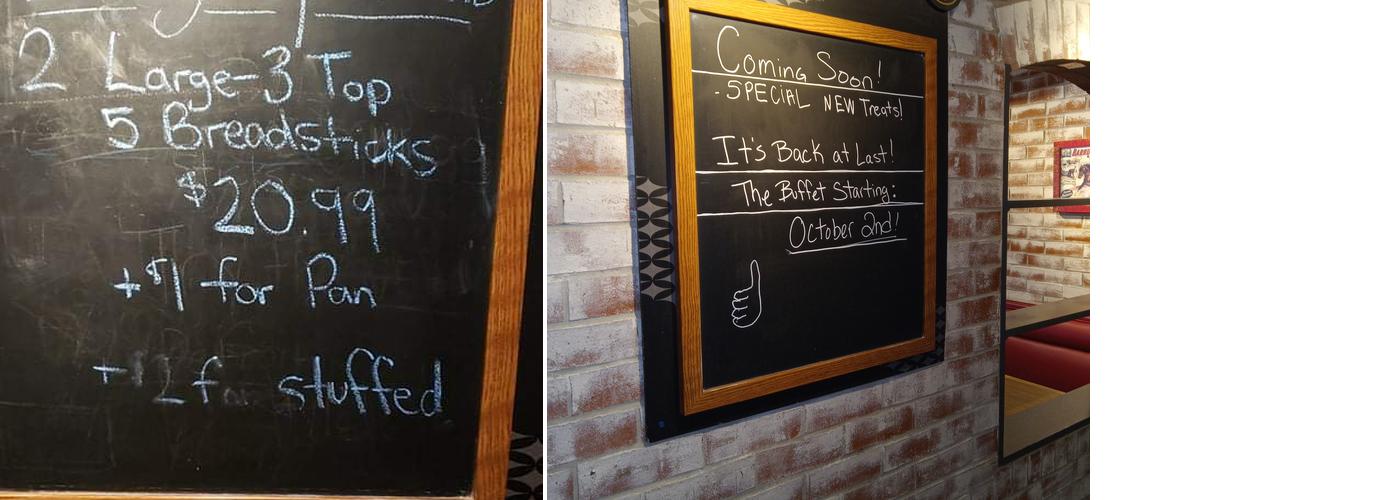 2 Large-3 Top
5 Breadsticks
$20.99
+$1 for Pan
+ 2 for stuffed
Coming Soon!
- SPECiAL NEW Treats!
It's Back at Last!
The Buffet Starting:
October 2nd!